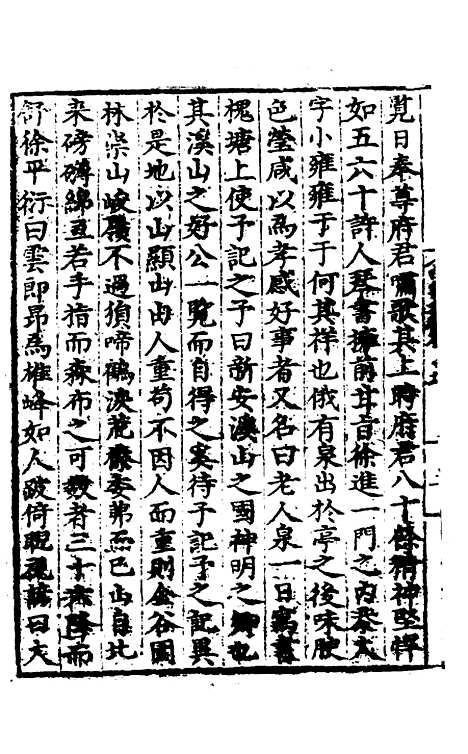 覓日奉尊府君嘯歌其上時府君八十餘精神堅悍
如五六十許人琴書擁前甘旨徐進一門之内恭大
字小雍雍于于何其祥也俄有泉出於亭之後味腴
色瑩咸以爲孝感好事者又名曰老人泉一日寓書
槐塘上使予記之予曰新安溪山之國神明之也
其溪山之好公一覧而自得之奚待予記予之記異
於是地以山顯山由人重苟不因人而重則金谷園
林崇山峻嶺不過猿啼鶴淚荒蕪委弗而巳山自此
来磅礴綿亘若手指而森布之可數者三十降而
舒徐平衍曰雲即昂爲雄峰如人跛倚睨視諺曰大